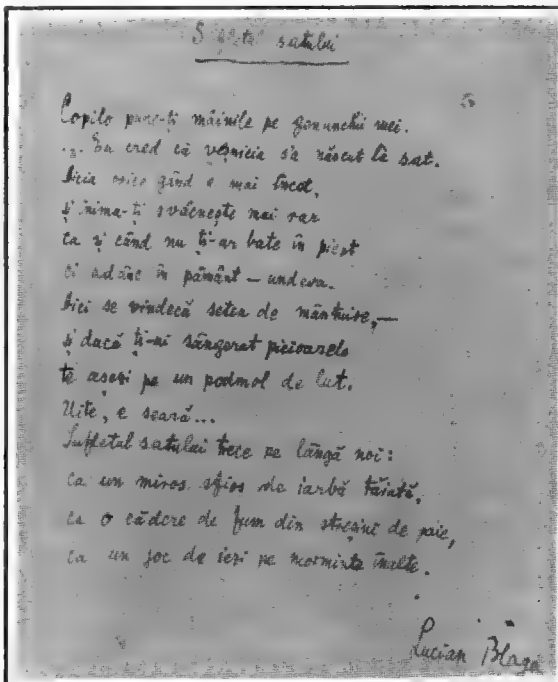 Sufletul satului
Copilo pune-ți mâinile pe genunchii mei.
Eu cred că veșnicia s'a născut la sat.
Aicia orice gând e mai încet,
și inima-ți svâcnește mai rar
ca și când nu ți-ar bate în piept
ci adânc în pământ — undeva.
Aici se vindecă setea de mântuire, —
și dacă ți-ai sângerat picioarele
te așezi pe un podmol de lut.
Uite, e seară...
Sufletul satului trece pe lângă noi:
ca un miros sfios de iarbă tăiată,
ca o cădere de fum din streșini de paie,
ca un joc de iezi pe morminte înalte.
Lucian Blaga